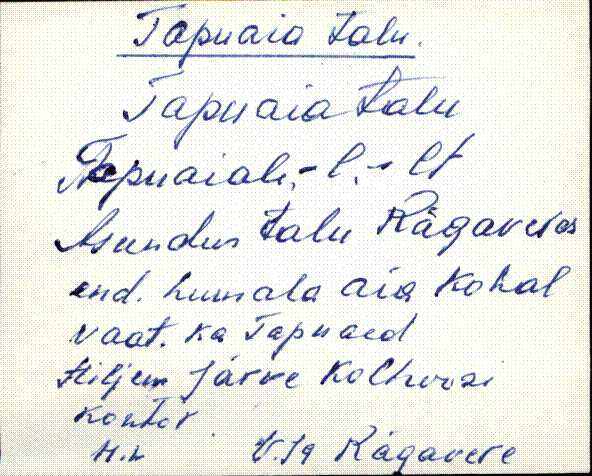 Tapuaia talu.
Tapuaia talu
Tapuaiale, - l, - lt
Asundus talu Rägaveres
end. humala aia kohal
vaat. ka Tapuaed
Hiljem Järve kolhoosi
kontor
V.Jg Rägavere